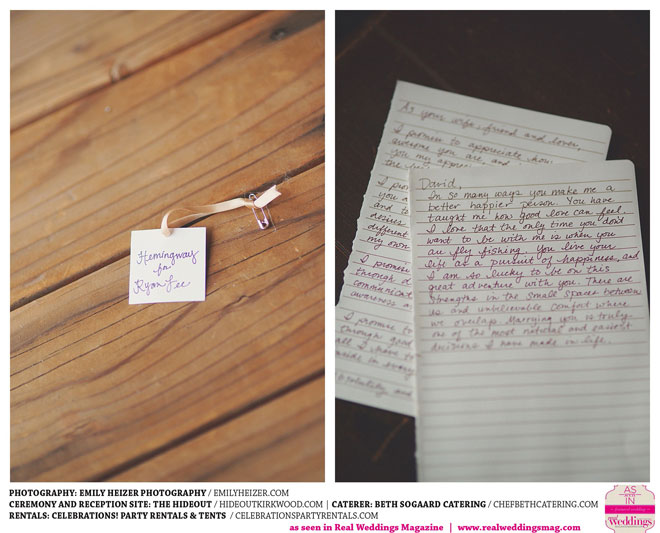 Hemingway
for
Ryan Lee
As your wife, friend and lover,
I promise to appreciate how
awesome you are, and
you my appre
the
I pro
and to
desires
different
my own
I promise
through d
communicat
awareness a
I promise to
through good
all I have to
beside in every
stability and
David,
In so many ways you make me a
better happier person. You have
taught me how good love can feel.
I love that the only time you don't
want to be with me is when you
are fly fishing. You live your
life as a pursuit of happiness, and
I am so lucky to be on this
great adventure with you. There are
strengths in the small spaces between
us and unbelievable comfort where
we overlap. Marrying you is truly
one of the most natural and easiest
decisions I have made in life.
PHOTOGRAPHY: EMILY HEIZER PHOTOGRAPHY / EMILYHEIZER.COM
CEREMONY AND RECEPTION SITE: THE HIDEOUT / HIDEOUTKIRKWOOD.COM | CATERER: BETH SOGAARD CATERING / CHEFBETHCATERING.COM
RENTALS: CELEBRATIONS! PARTY RENTALS & TENTS / CELEBRATIONSPARTYRENTALS.COM
as seen in Real Weddings Magazine | www.realweddingsmag.com
AS
SEEN IN
IN
Weddings